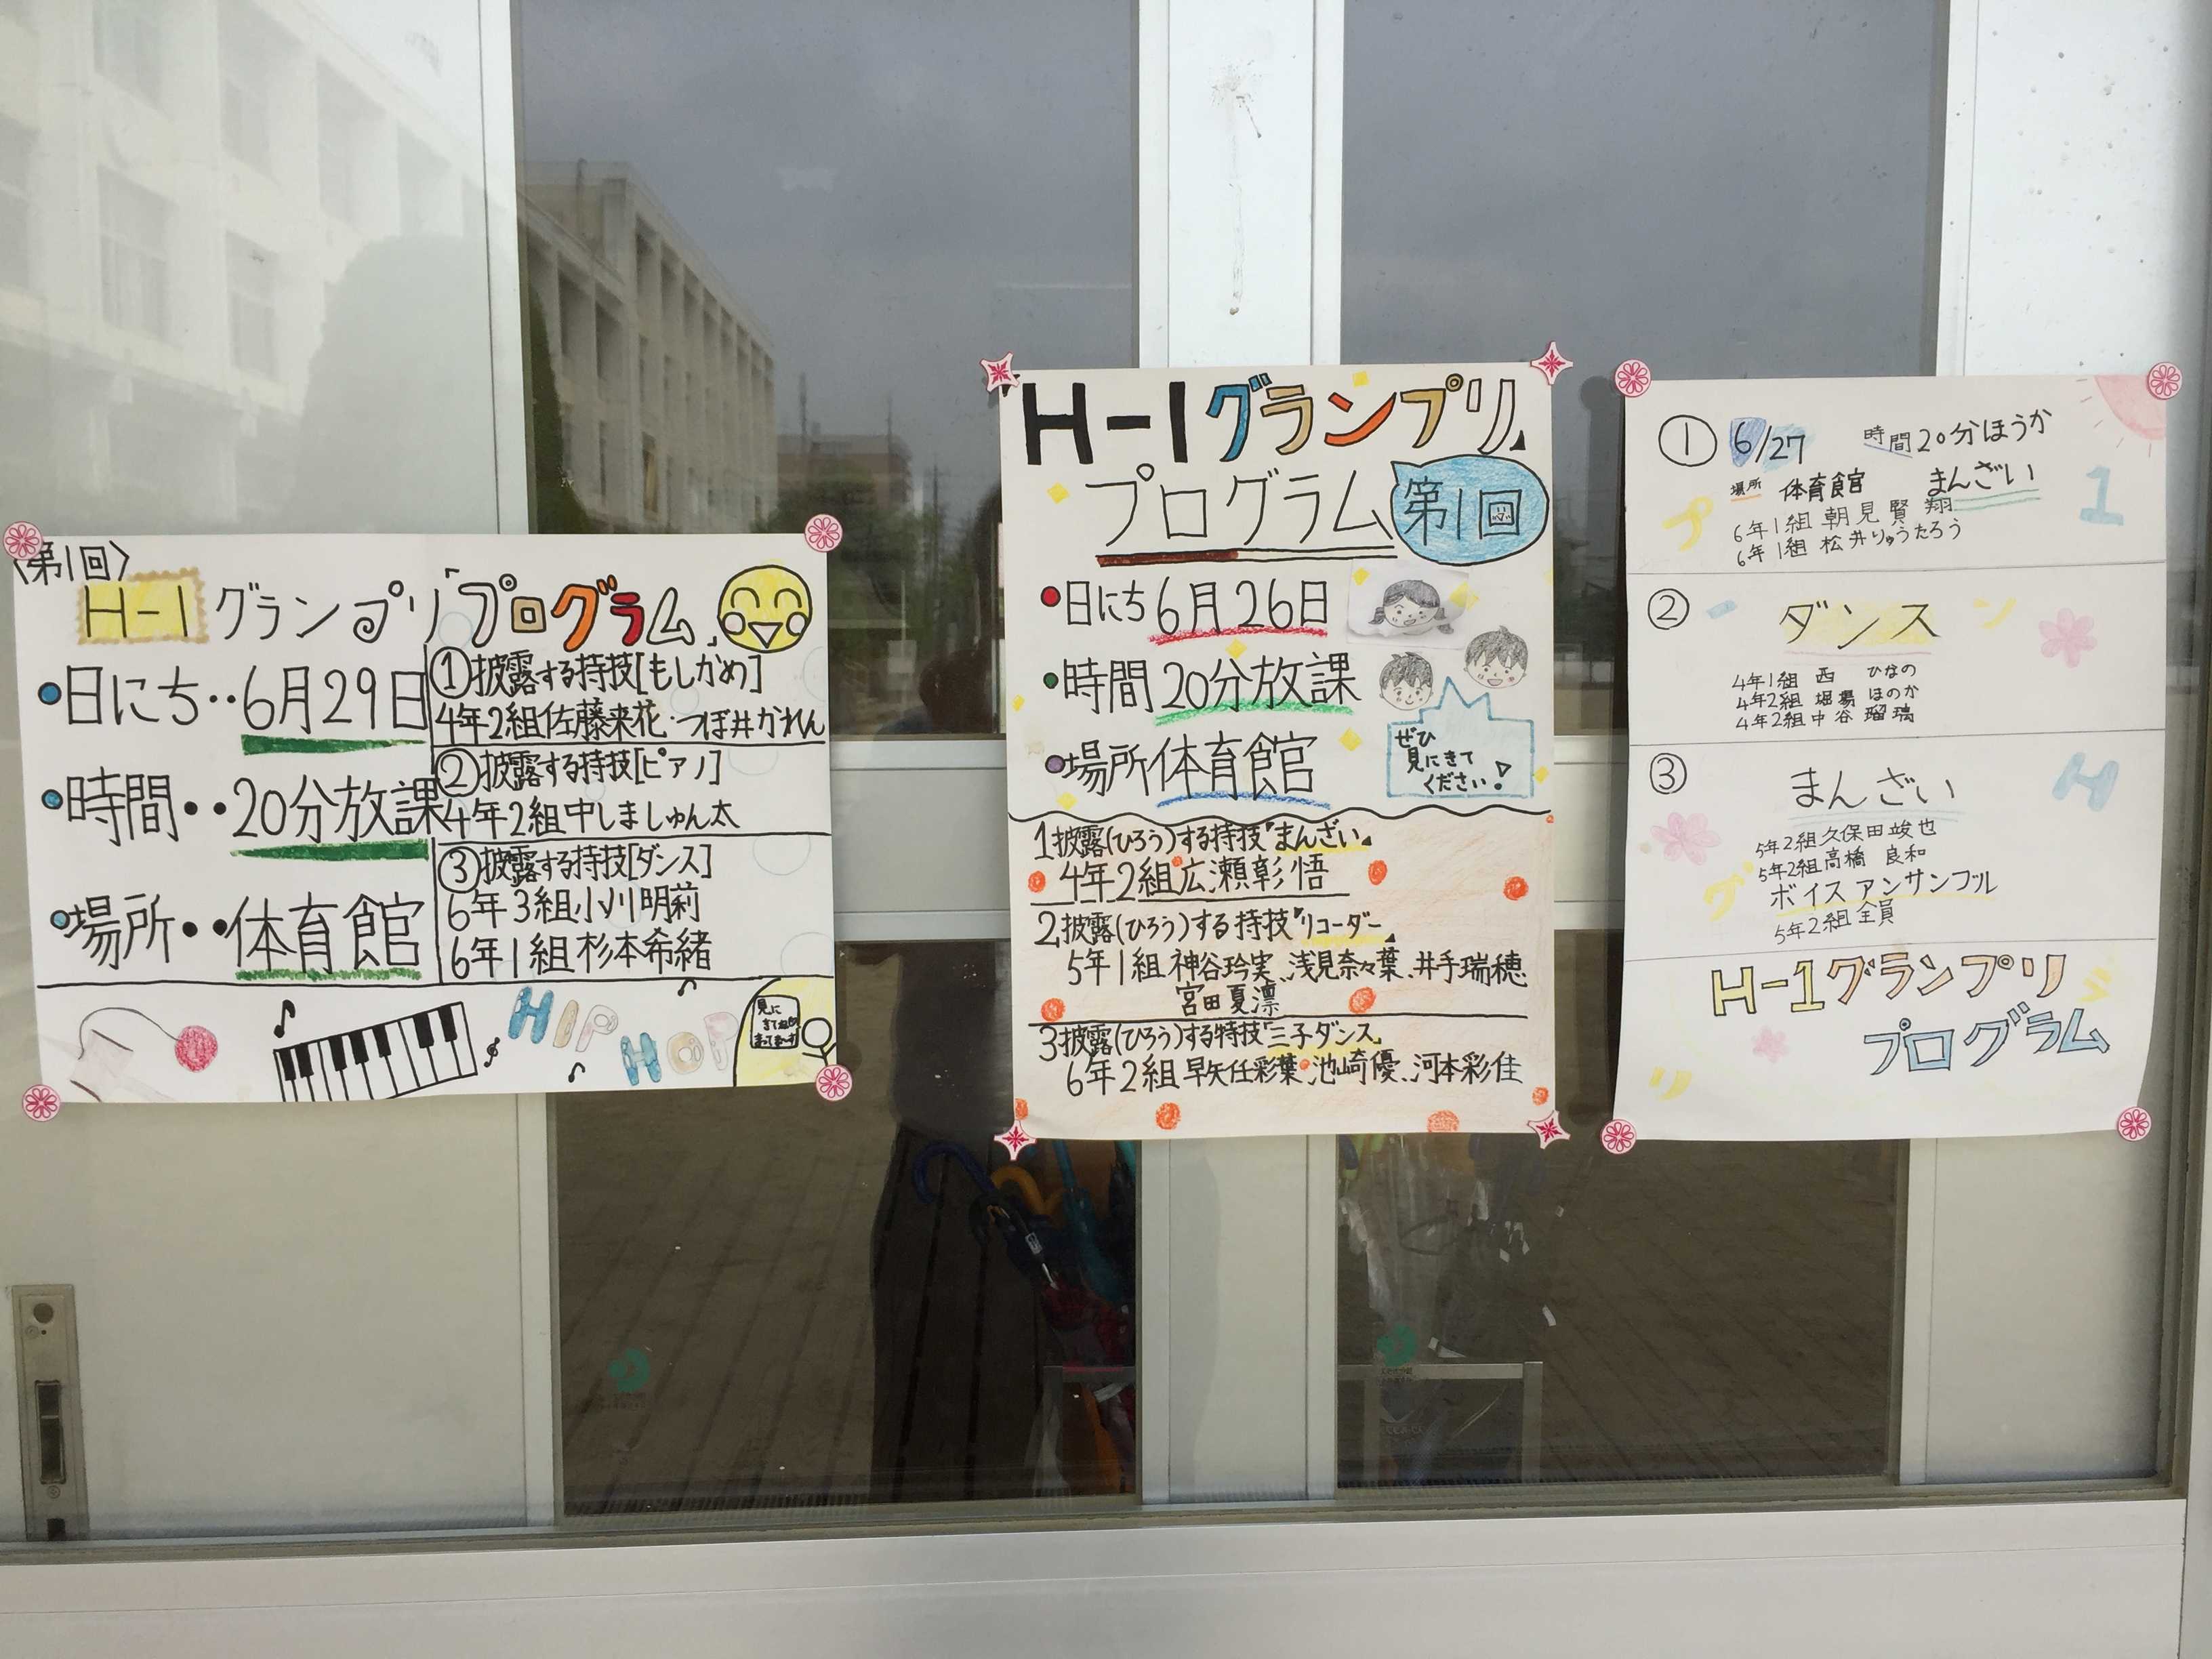 〈第1回〉
H-1グランプリ「プログラム」
日にち‥6月29日
時間‥20分放課
場所‥体育館
①披露する持技[もしかめ]
4年2組佐藤来花・つぼ井かれん
②披露する持技[ピアノ]
4年2組中しましゅん太
③披露する持技[ダンス]
6年3組小川明莉
6年1組杉本希緒
HIP
HOP
見に
きてね
「H-1グランプリ」
プログラム 第1回
日にち6月26日
時間20分放課
場所体育館
ぜひ
見にきて
ください!
1披露(ひろう)する持技『まんざい』
4年2組広瀬彰悟
2披露(ひろう)する持技『リコーダー』
5年1組神谷玲実、浅見奈々葉、井手瑞穂
宮田夏凛
3披露(ひろう)する特技「三子ダンス」
6年2組早矢仕彩葉・池崎優、河本彩佳
① 6/27 時間20分ほうか
場所 体育館 まんざい
6年1組 朝見賢翔
6年1組 松井りゅうたろう
② ダンス
4年1組 西 ひなの
4年2組 堀場 ほのか
4年2組 中谷 瑠璃
③ まんざい
5年2組 久保田竣也
5年2組 高橋 良和
ボイスアンサンブル
5年2組 全員
H-1グランプリ
プログラム